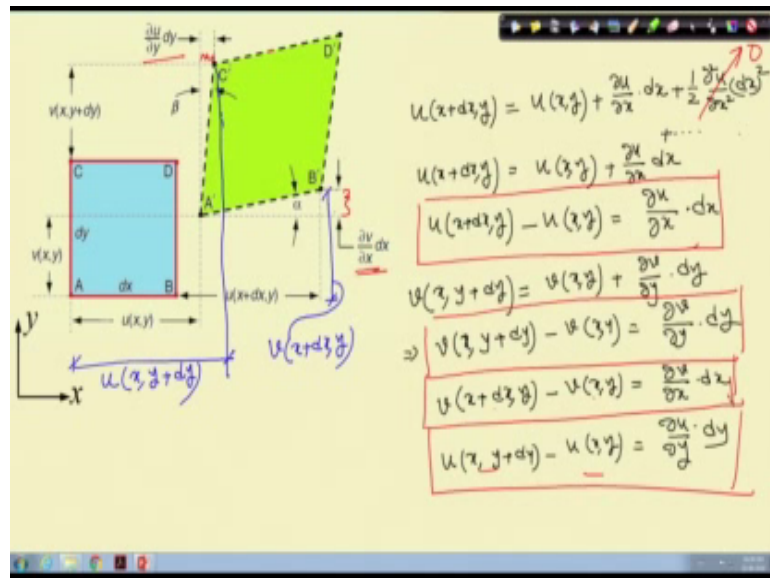 ∂u/∂y dy
C'
D'
β
v(x,y+dy)
B'
A'
α
3
∂v/∂x dx
C
D
dy
v(x,y)
A
dx
B
u(x+dx,y)
u(x,y)
v(x+dx,y)
u(x,y+dy)
y
x
u(x+dx,y) = u(x,y) + ∂u/∂x · dx + 1/2 ∂²u/∂x² (dx)² 0
+ · · · ·
u(x+dx,y) = u(x,y) + ∂u/∂x dx
u(x+dx,y) − u(x,y) = ∂u/∂x · dx
v(x, y+dy) = v(x,y) + ∂v/∂y · dy
⇒ v(x, y+dy) − v(x,y) = ∂v/∂y · dy
v(x+dx,y) − v(x,y) = ∂v/∂x · dx
u(x, y+dy) − u(x,y) = ∂u/∂y · dy